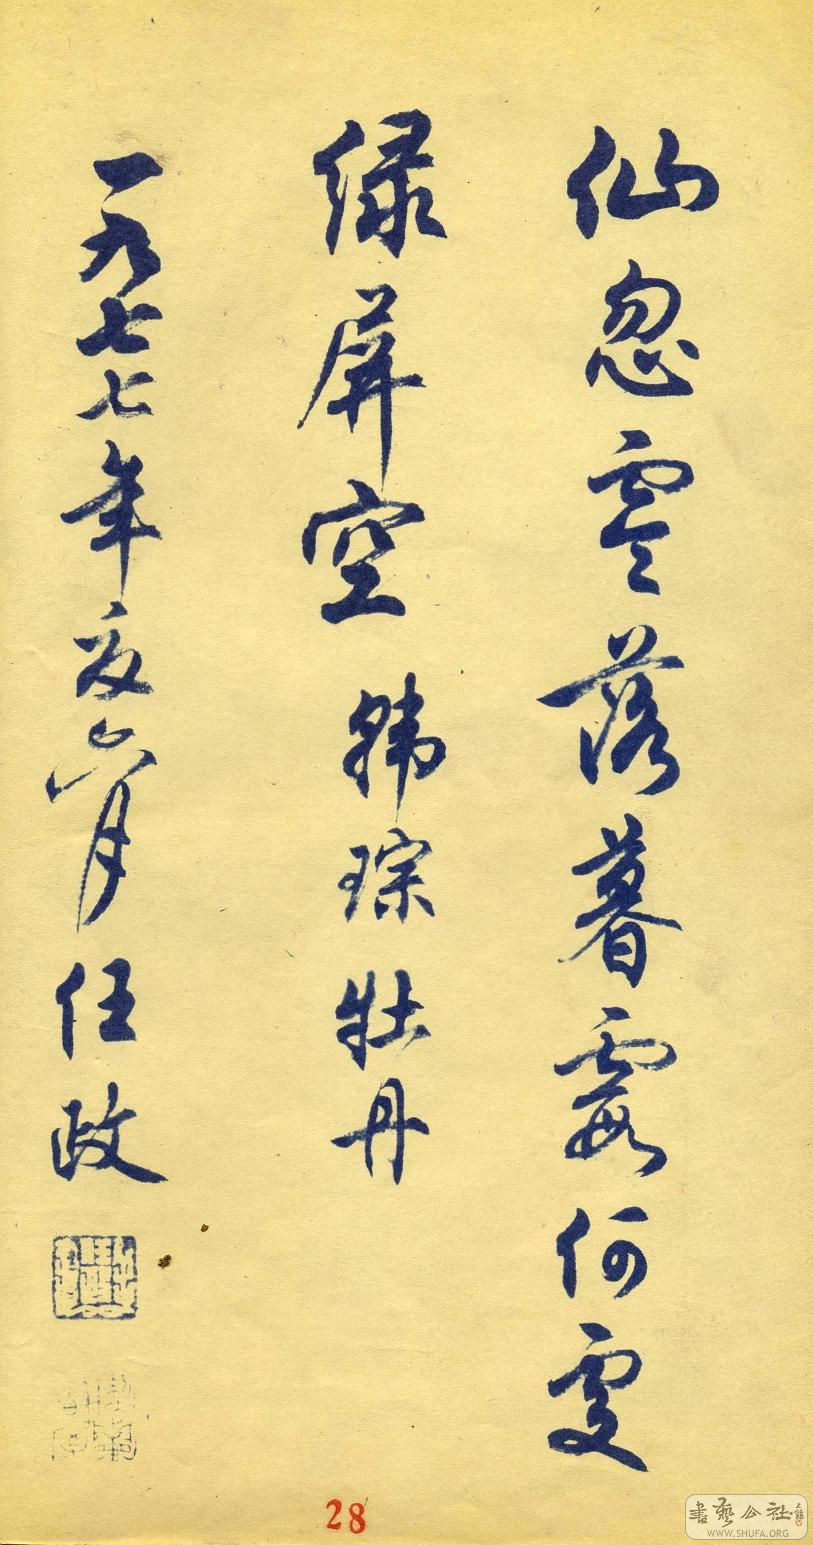 仙忽零落暮霞何處
绿屏空 韩琮 牡丹
一九七七年夏六月 任政
28
書藝公社
WWW.SHUFA.ORG